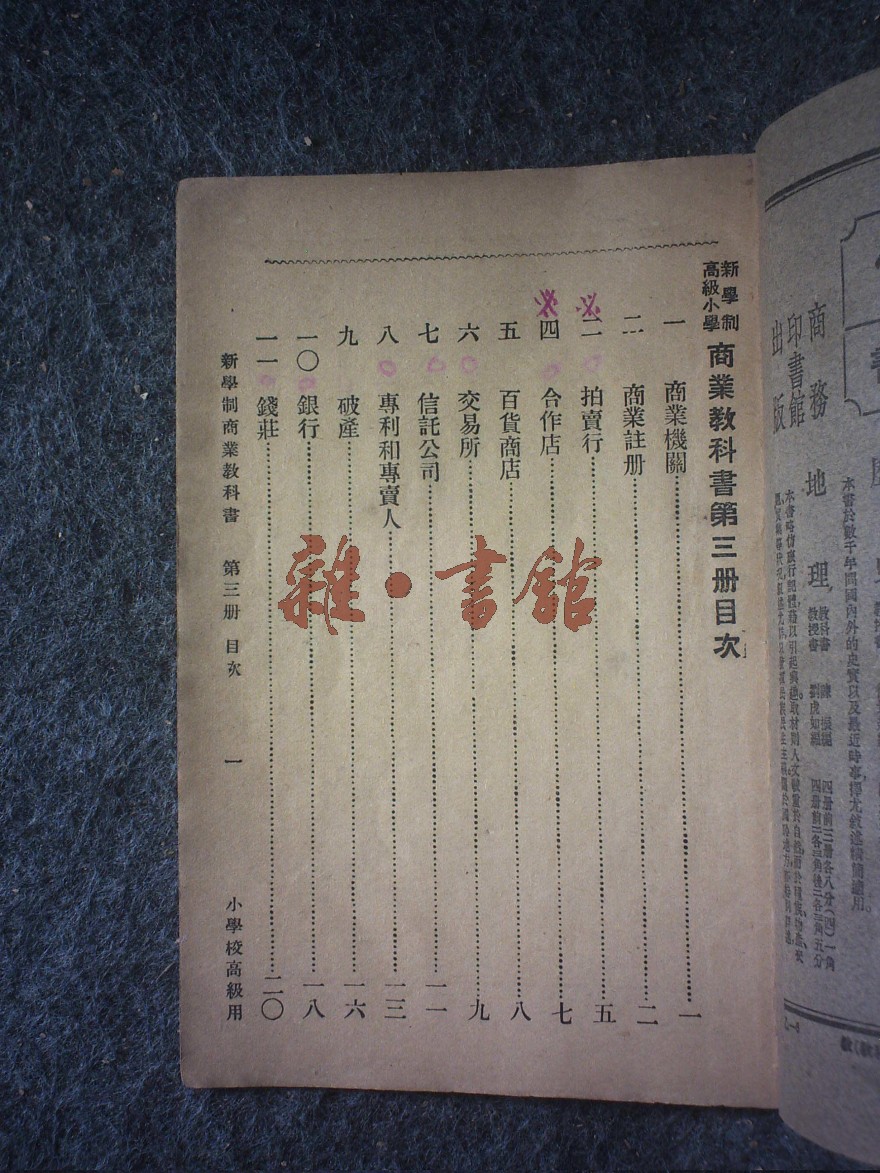 新學制
高級小學
商業教科書第三册目次
一 商業機關 一
二 商業註册 二
三 拍賣行 五
四 合作店 七
五 百貨商店 八
六 交易所 九
七 信託公司 一一
八 專利和專賣人 一三
九 破產 一六
一〇 銀行 一八
一一 錢莊 二〇
新學制商業教科書 第三册 目次 一 小學校高級用
雜·書館
商務
印書館
出版
地理
教科書
教授書
本書於數千年間國內外的史實以及最近時事